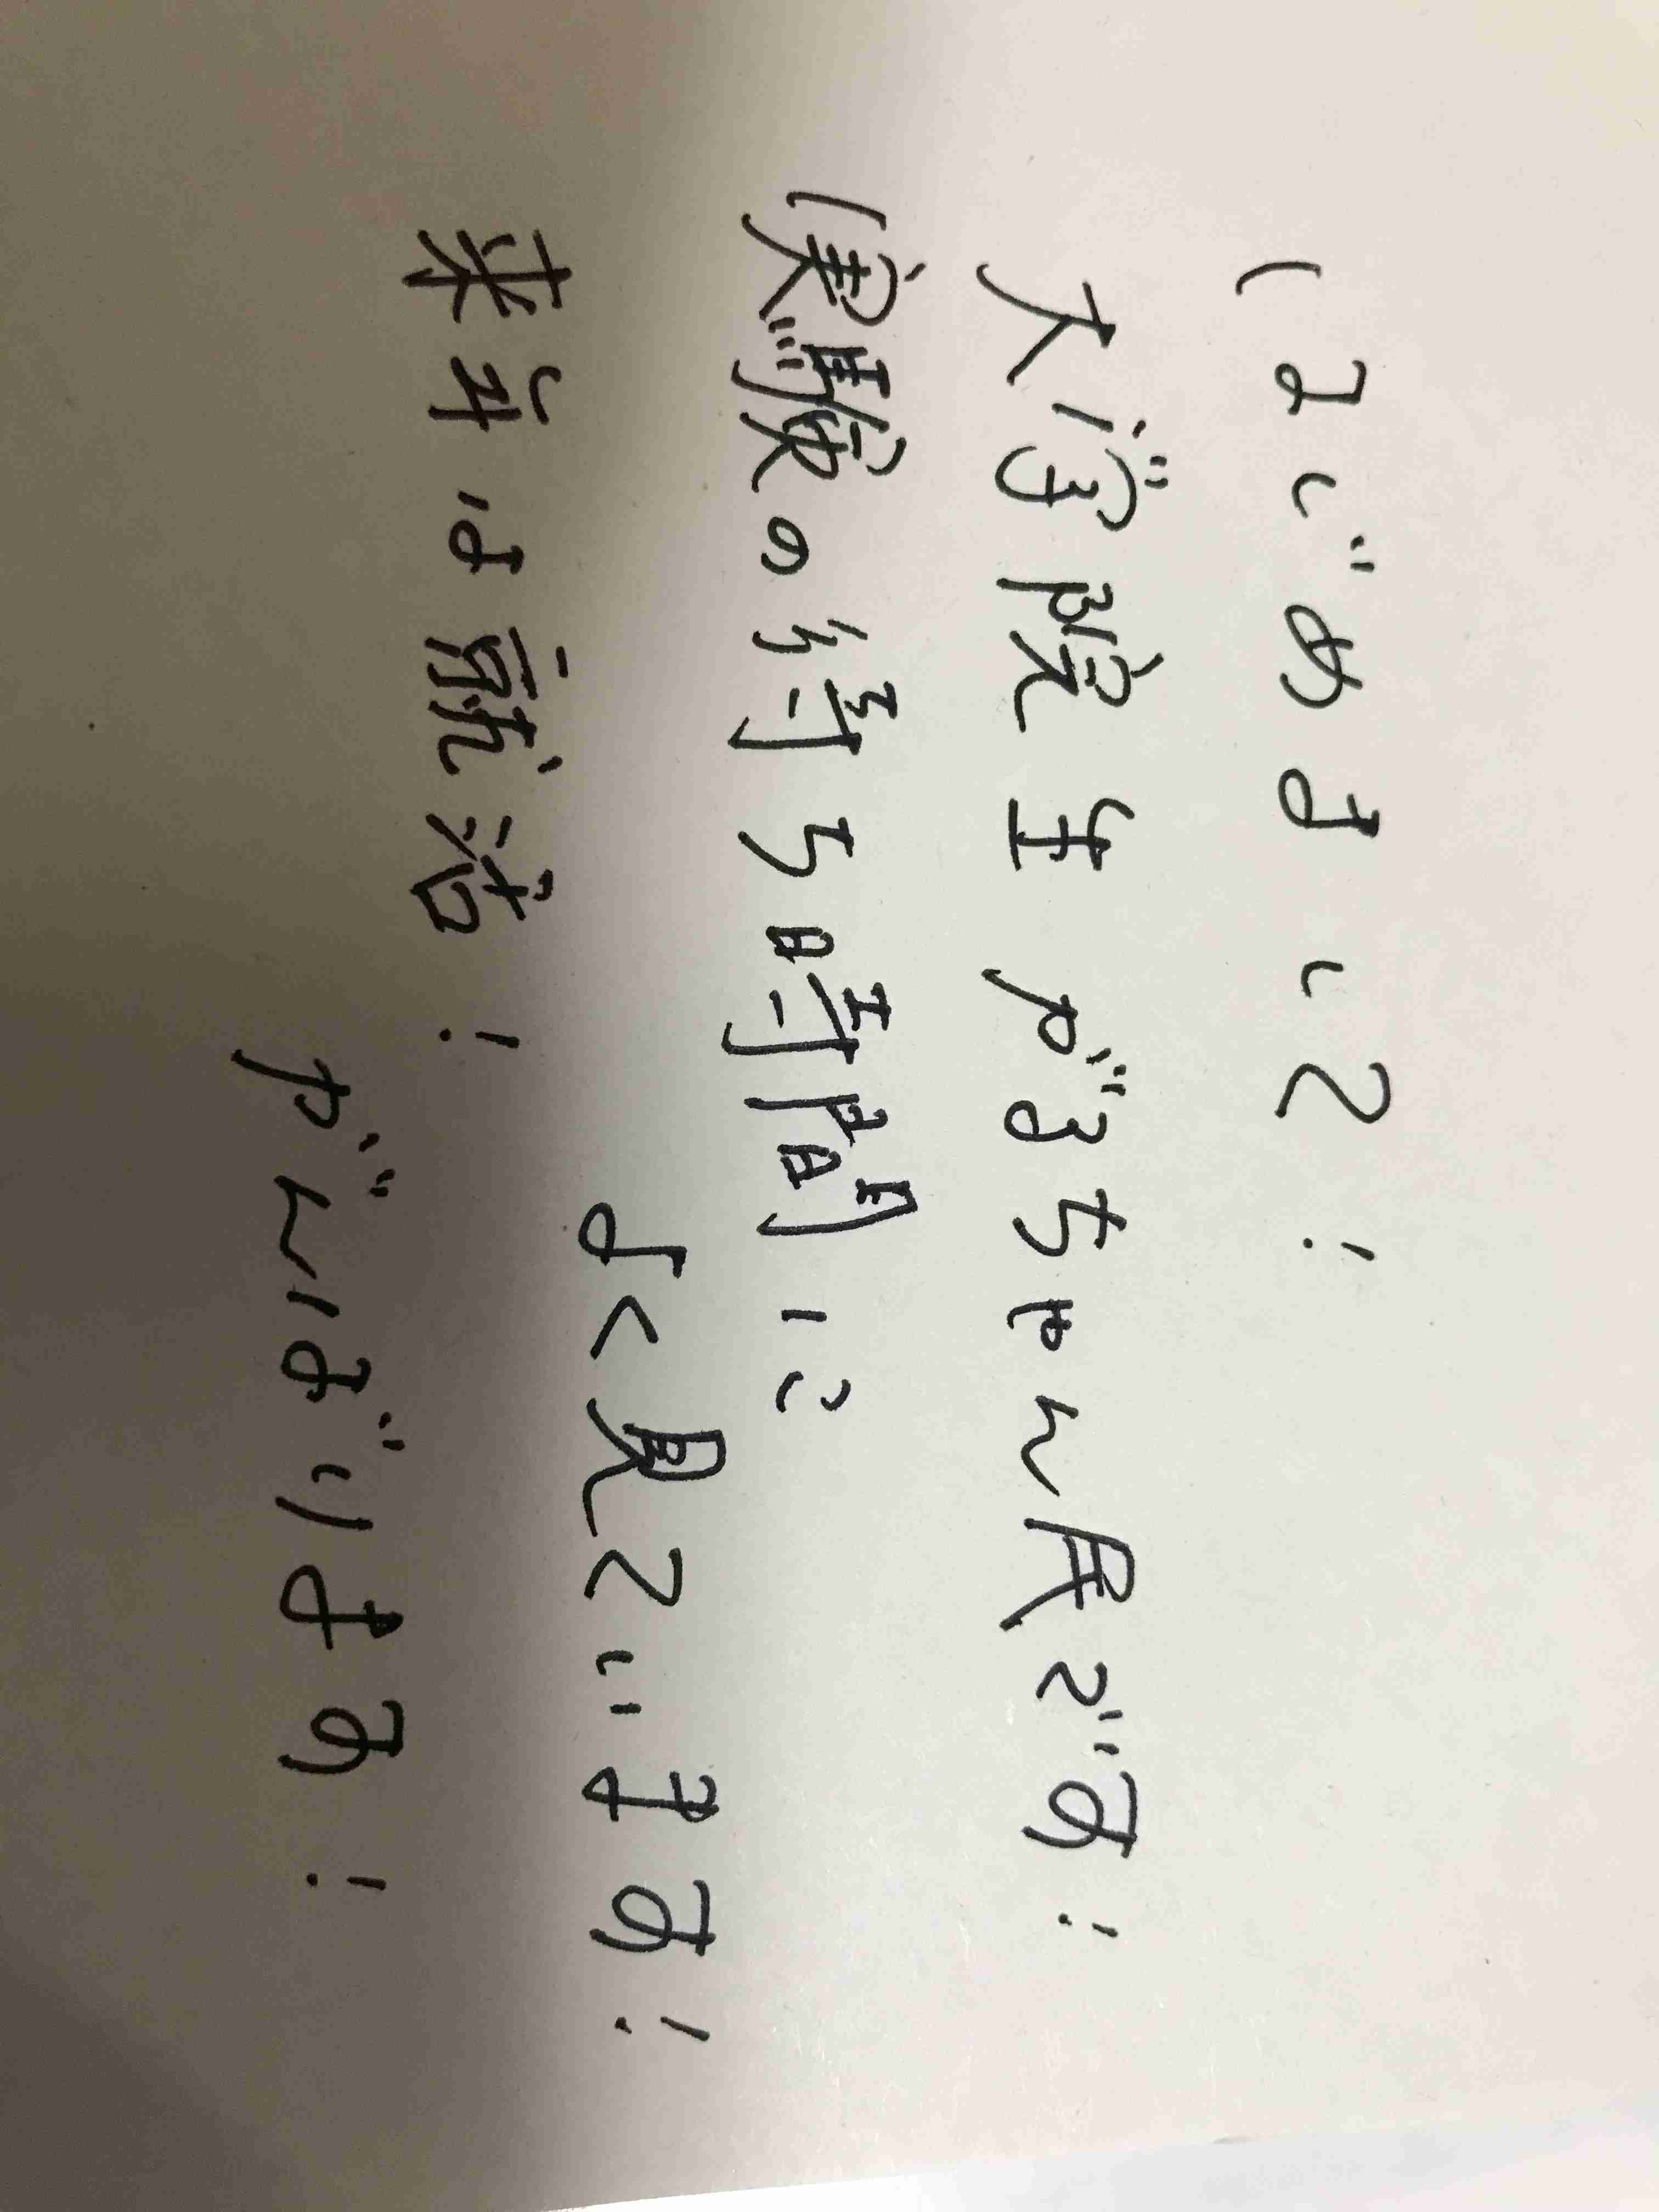 はじめまして!
大学院生 がるちゃん民です!
実験の待ち時間に
よく見ています!
来年は就活!
がんばります!